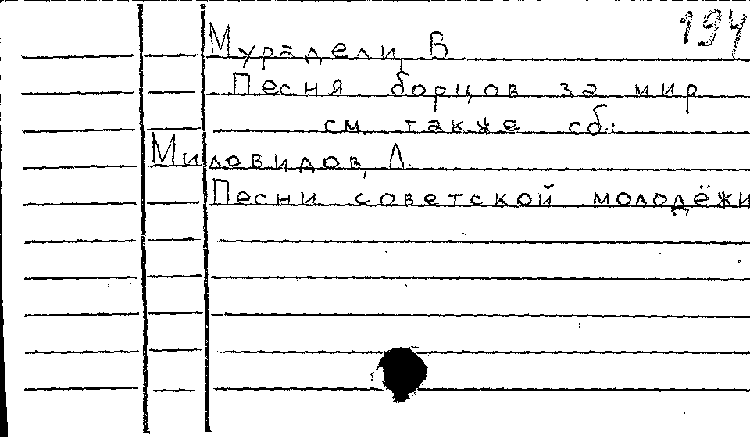 194
Мурадели, В
Песня борцов за мир
см. также сб.:
Миловидов, Л.
Песни советской молодёжи